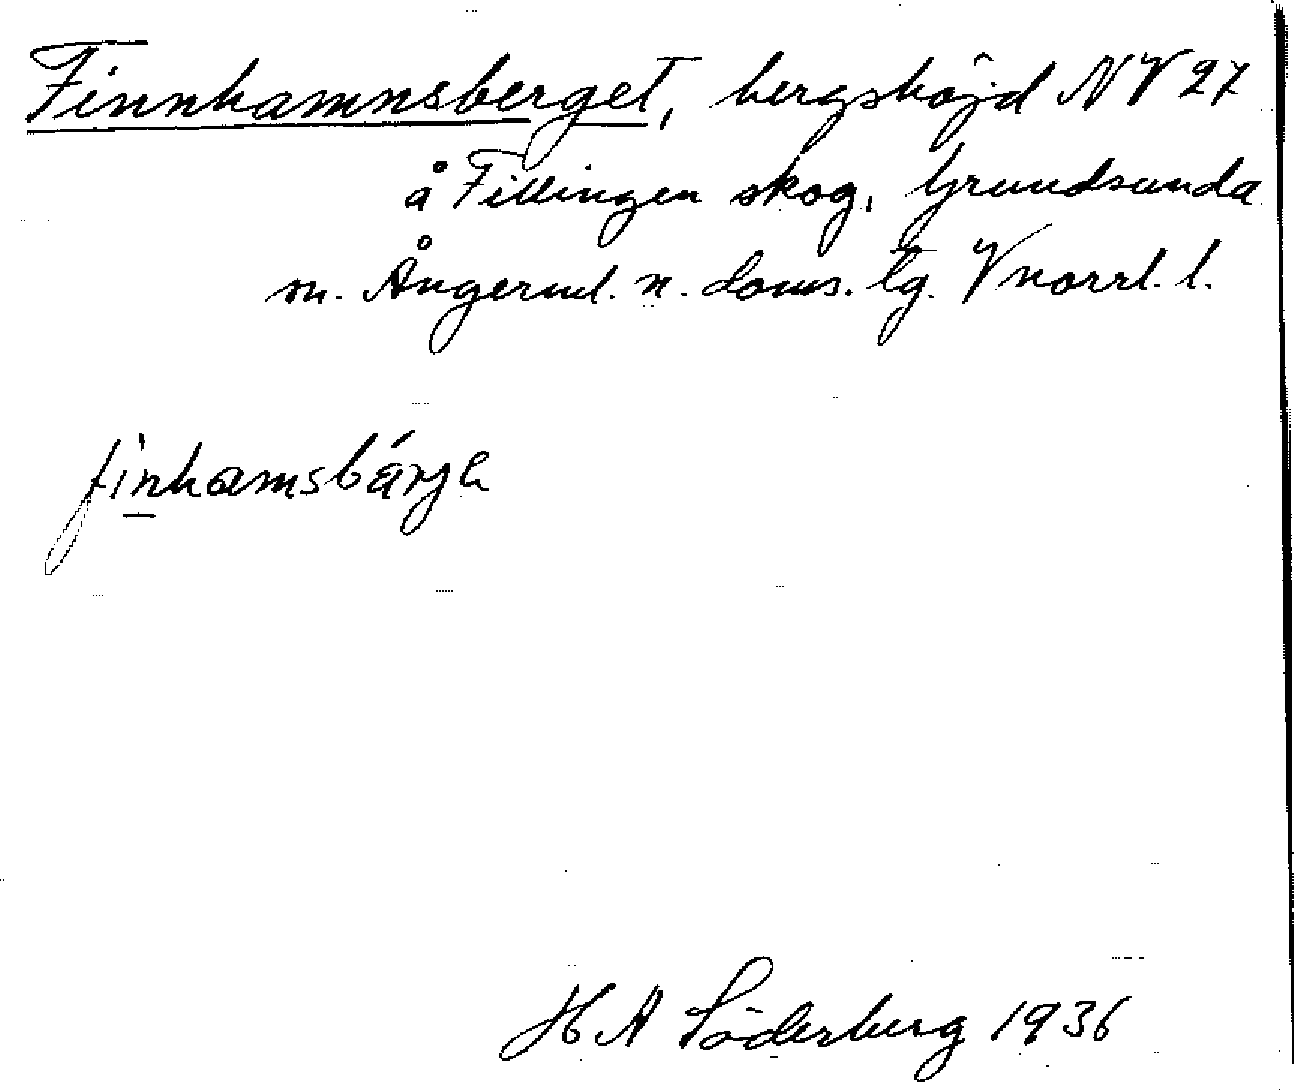 Finnhamnsberget, bergshöjd NV 27
å Fillingen skog, Grundsunda
m. Ångerml. n. doms. tg. Vnorrl. l.
finhamsbárjə
H A Söderberg 1936